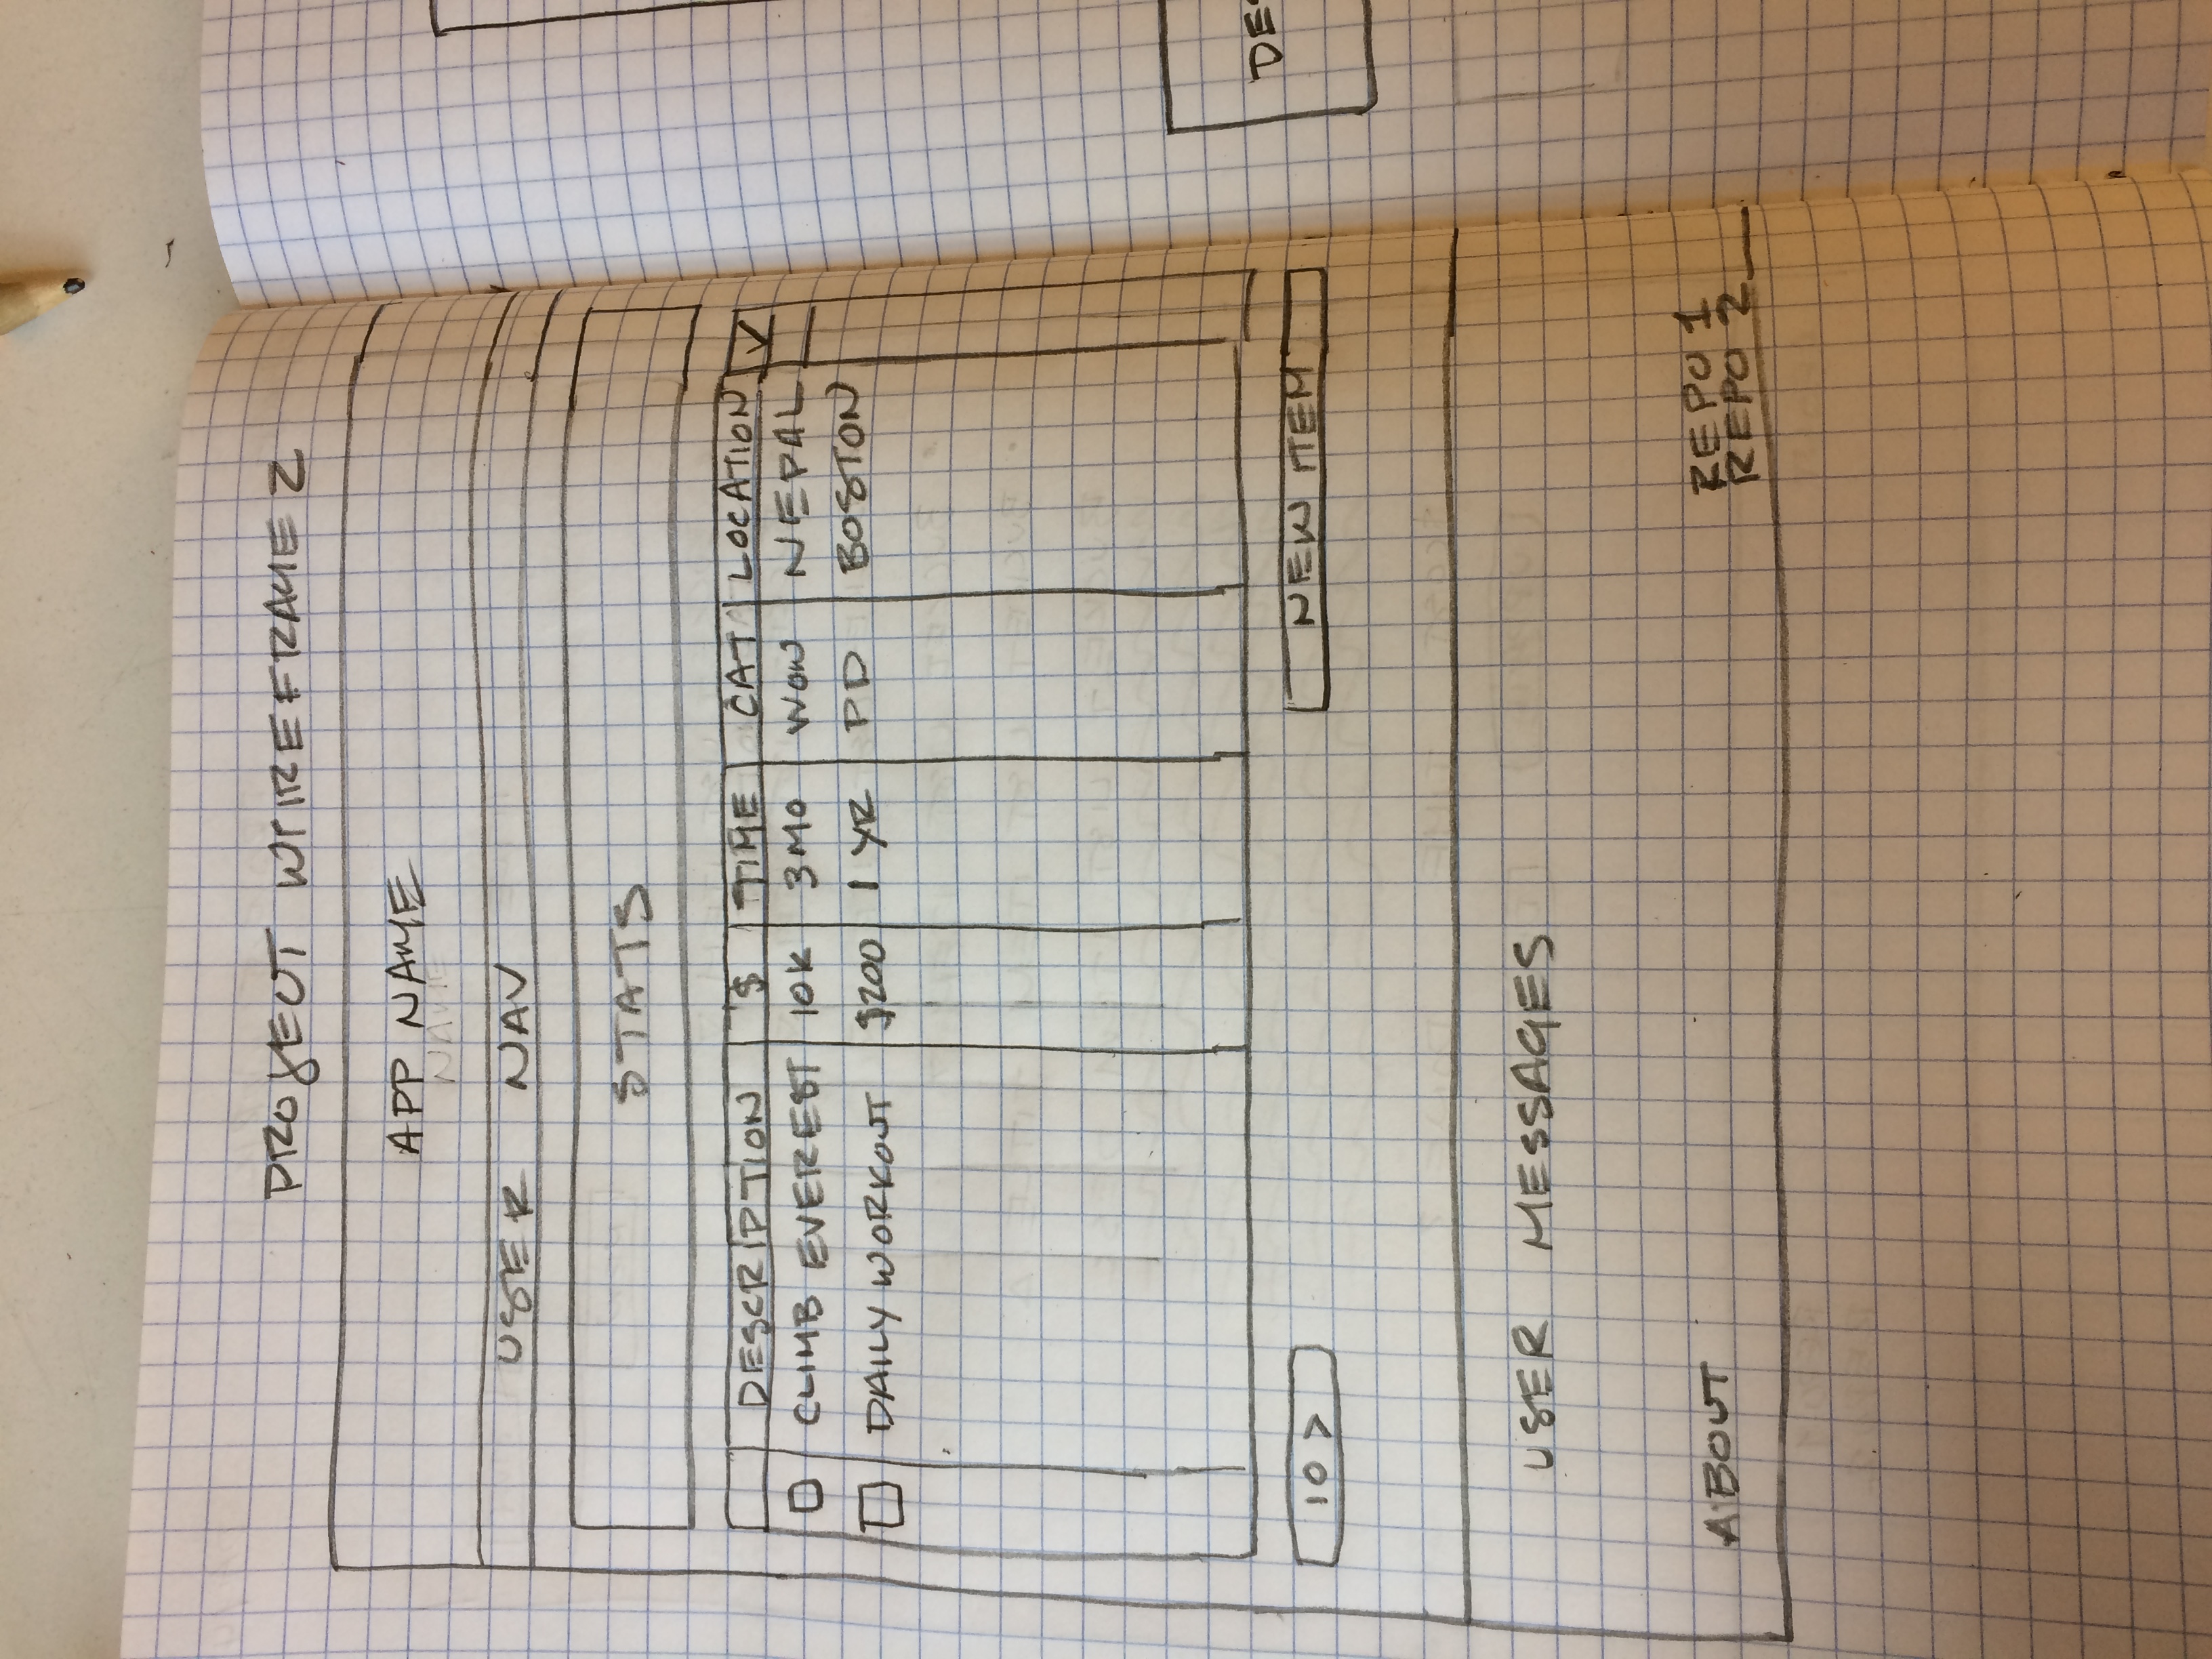 PROJECT WIREFRAME 2
APP NAME
NAME
USER NAV
STATS
DESCRIPTION $ TIME CAT LOCATION V
CLIMB EVEREST 10K 3MO WOW NEPAL
DAILY WORKOUT $200 1 YR PD BOSTON
10 >
NEW ITEM
USER MESSAGES
ABOUT
REPO 1
REPO 2
DES